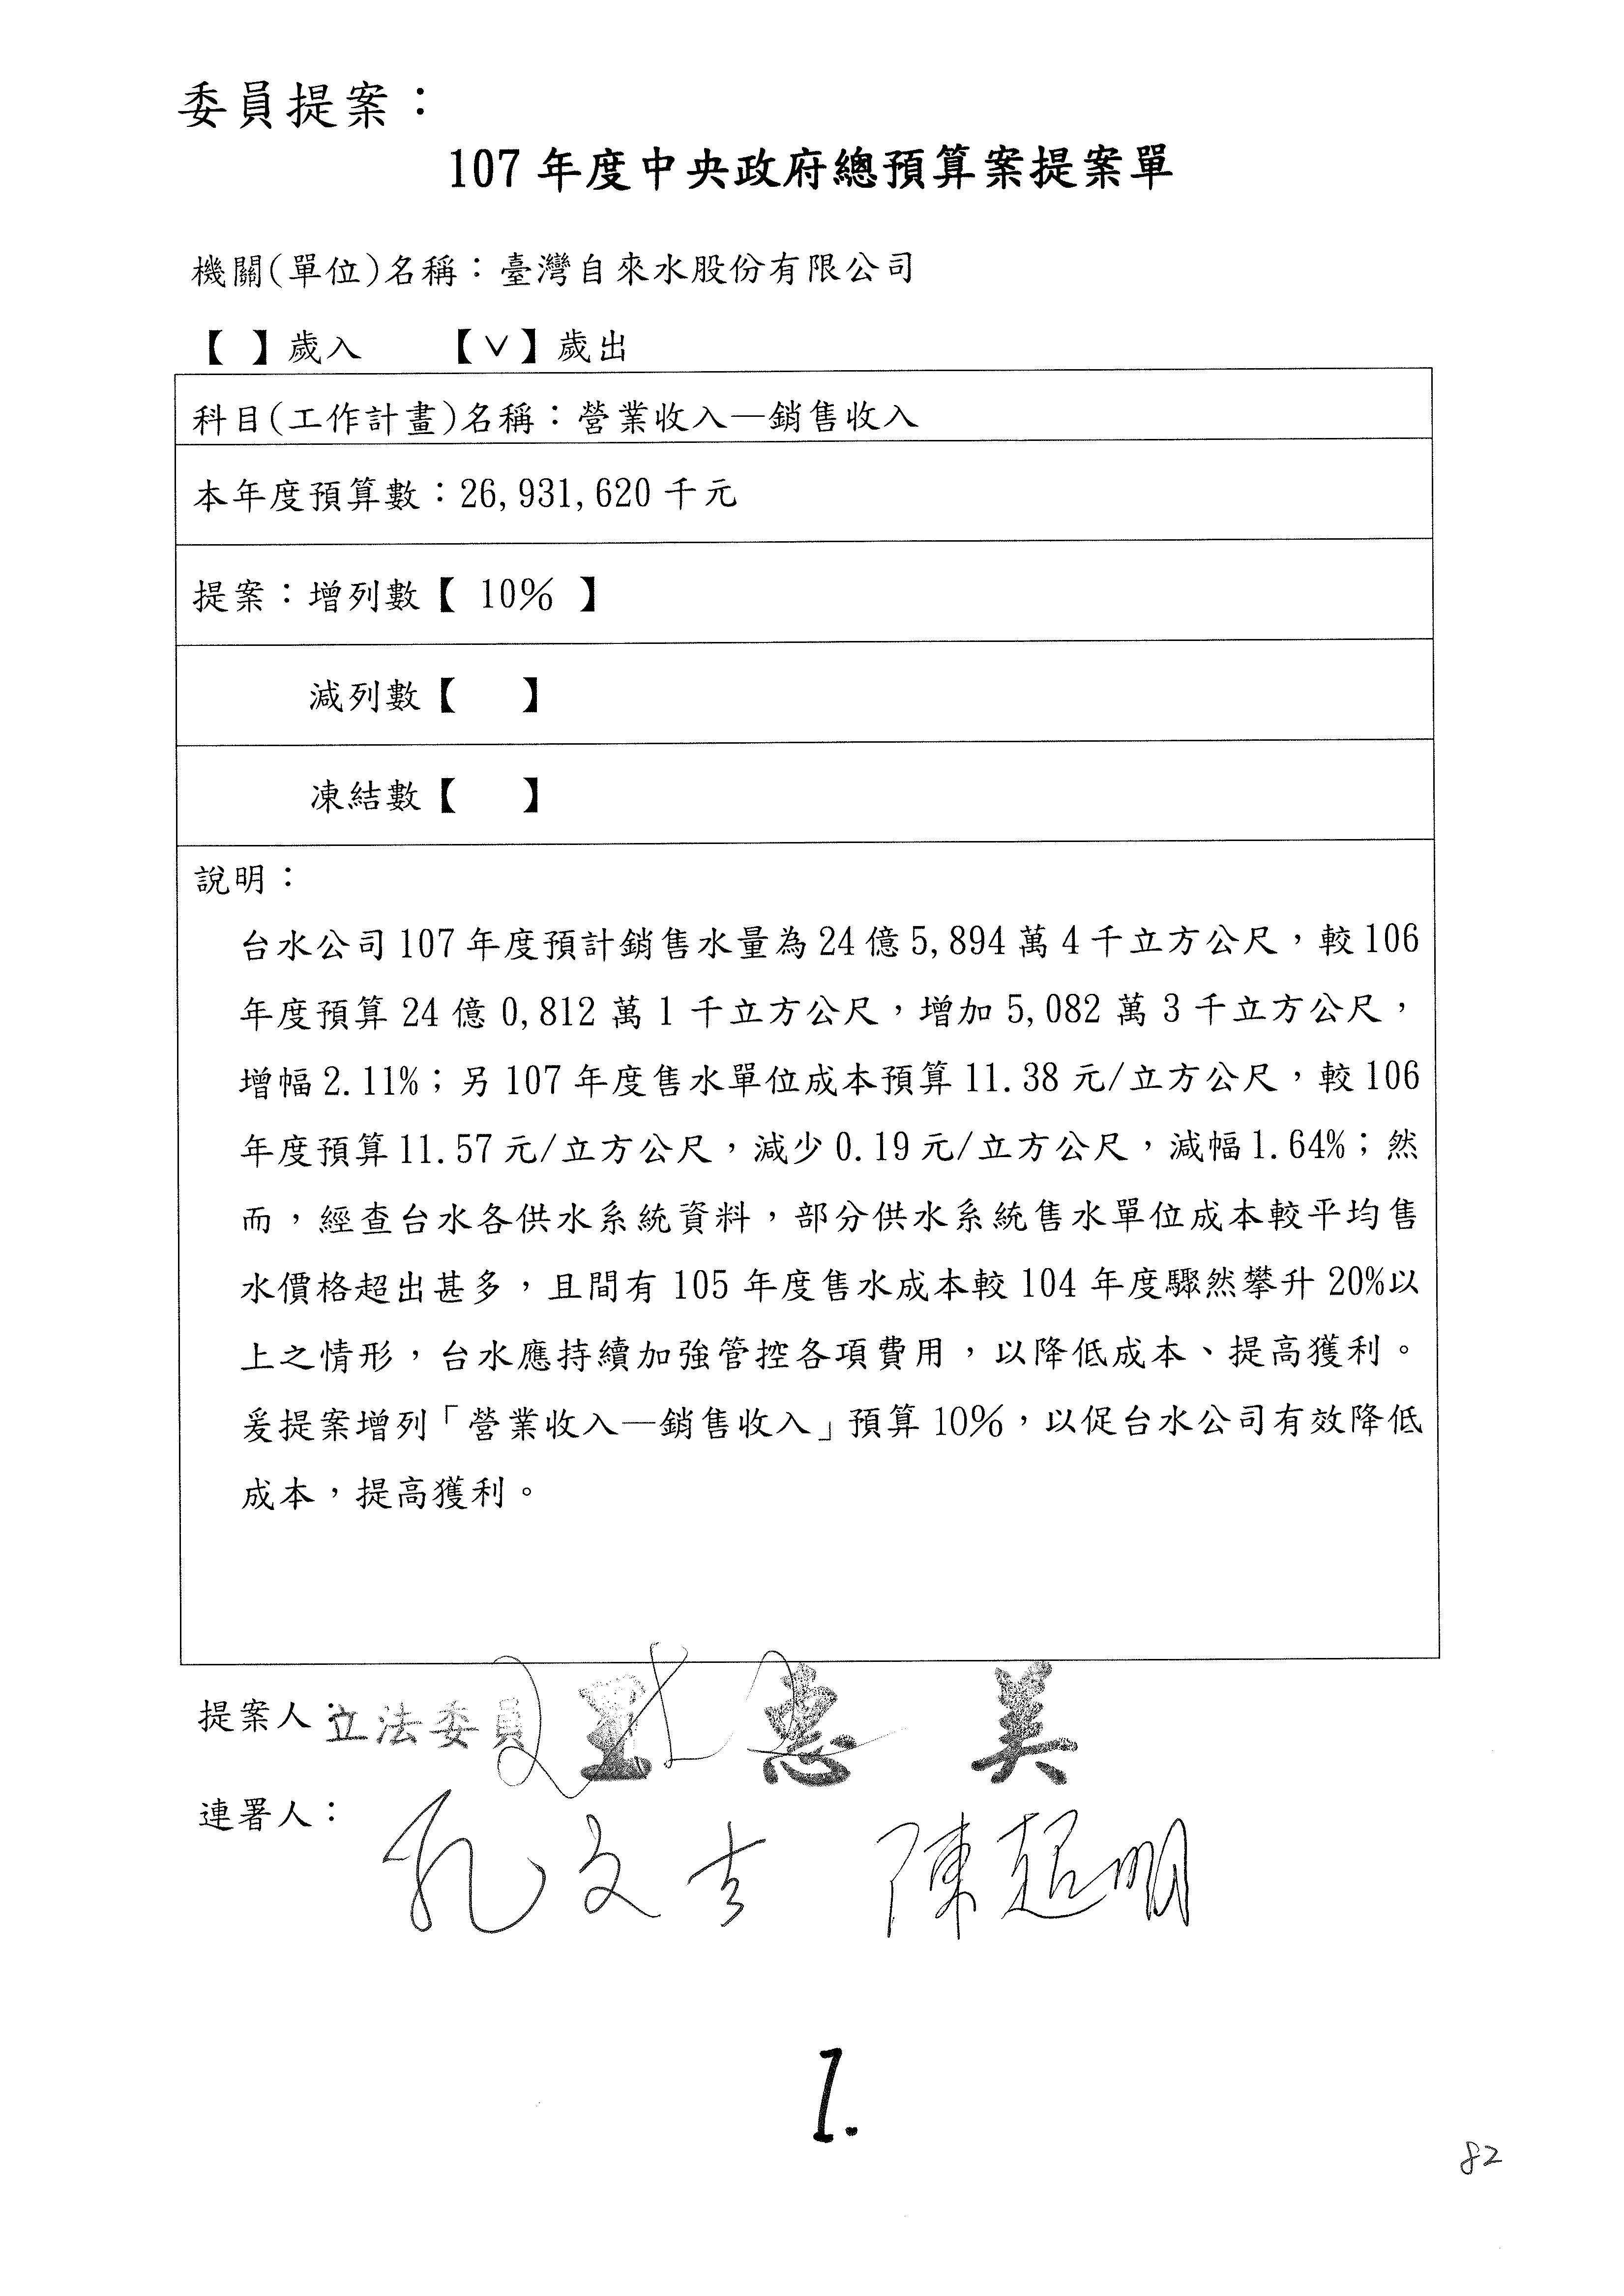 委員提案：
107 年度中央政府總預算案提案單
機關(單位)名稱：臺灣自來水股份有限公司
【 】歲入 【∨】歲出
科目(工作計畫)名稱：營業收入—銷售收入
本年度預算數：26,931,620 千元
提案：增列數【 10% 】
減列數【 】
凍結數【 】
說明：
台水公司 107 年度預計銷售水量為 24 億 5,894 萬 4 千立方公尺，較 106
年度預算 24 億 0,812 萬 1 千立方公尺，增加 5,082 萬 3 千立方公尺，
增幅 2.11%；另 107 年度售水單位成本預算 11.38 元/立方公尺，較 106
年度預算 11.57 元/立方公尺，減少 0.19 元/立方公尺，減幅 1.64%；然
而，經查台水各供水系統資料，部分供水系統售水單位成本較平均售
水價格超出甚多，且間有 105 年度售水成本較 104 年度驟然攀升 20%以
上之情形，台水應持續加強管控各項費用，以降低成本、提高獲利。
爰提案增列「營業收入—銷售收入」預算 10%，以促台水公司有效降低
成本，提高獲利。
提案人：立法委員 王惠美
連署人：孔文吉 陳超明
1.
82